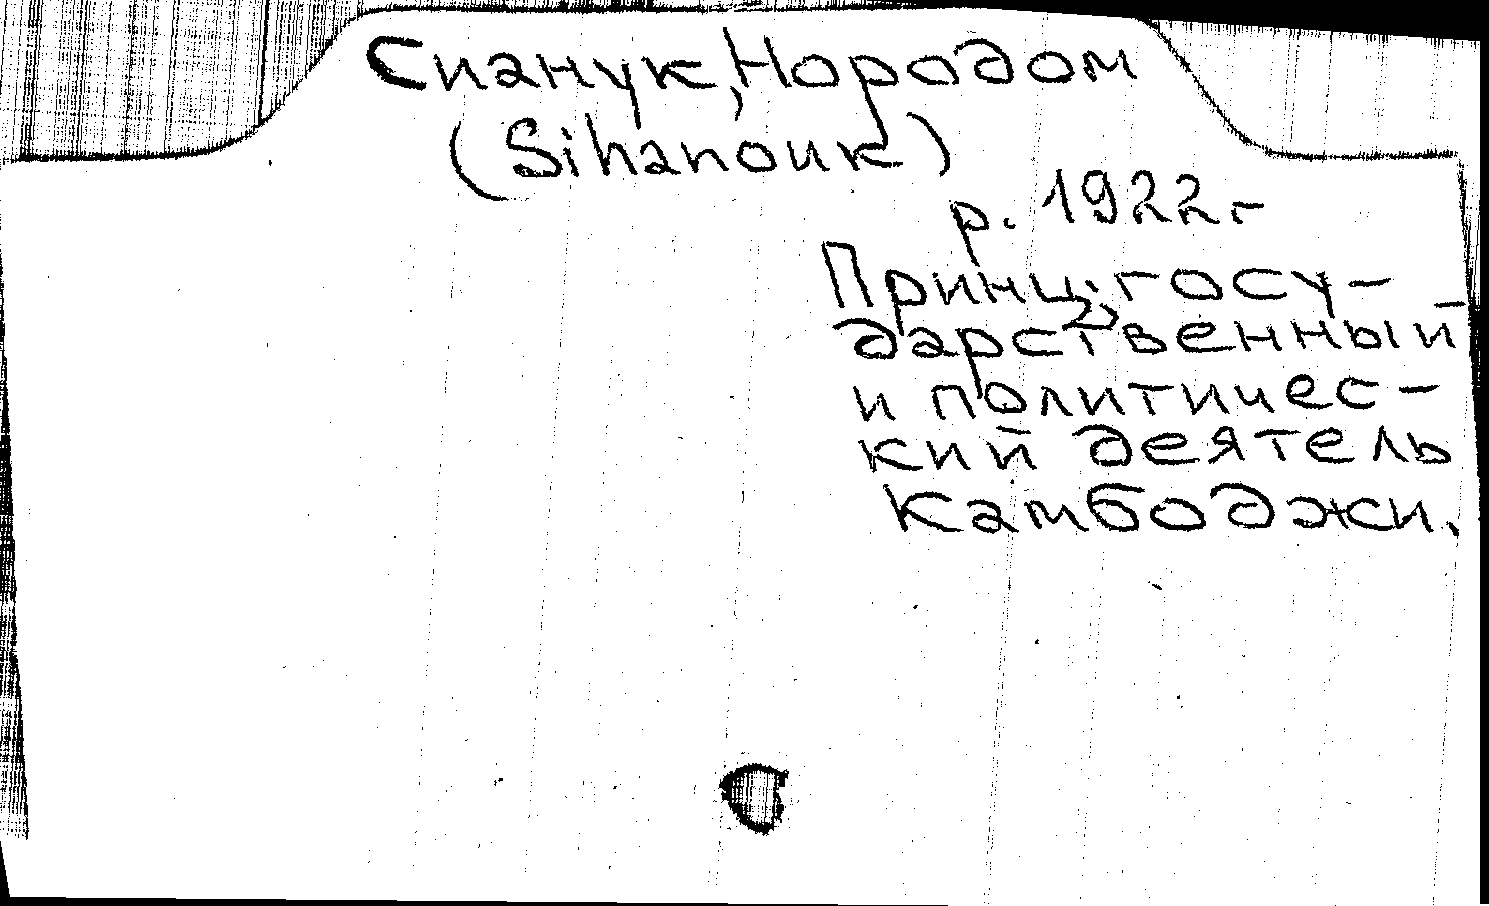 Сианук, Нородом
(Sihanouk)
р. 1922 г
Принц; госу-
дарственный
и политичес-
кий деятель
Камбоджи.